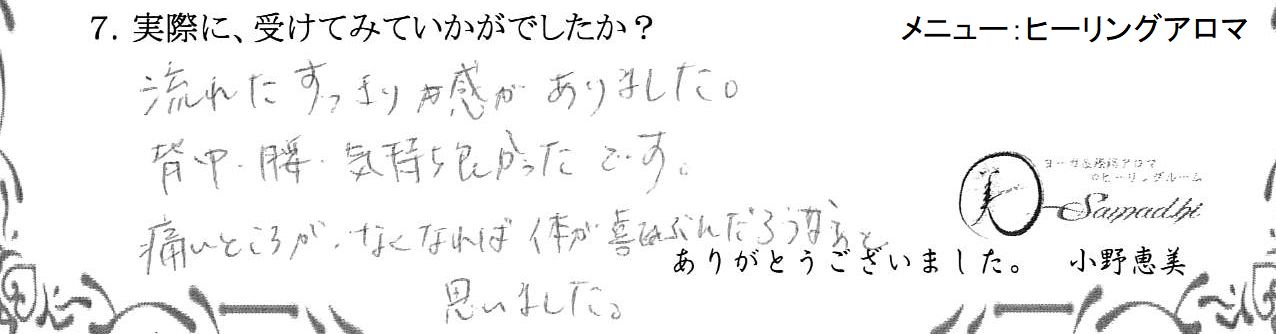 7. 実際に、受けてみていかがでしたか？
メニュー：ヒーリングアロマ
流れたすっきり感がありました。
背中・腰・気持ち良かったです。
ヨーガ&療終アロマ
のヒーリングルーム
Samadhi
痛いところが、なくなれば体が喜ぶんだろうなぁと
ありがとうございました。 小野恵美
思いました。